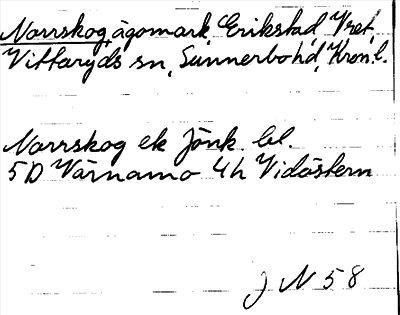 Norrskog, ägomark, Erikstad, Vret,
Vittaryds sn, Sunnerbo hd, Kron.l.
Norrskog ek Jönk. bl.
5D Värnamo 4h Vidöstern
J N 58